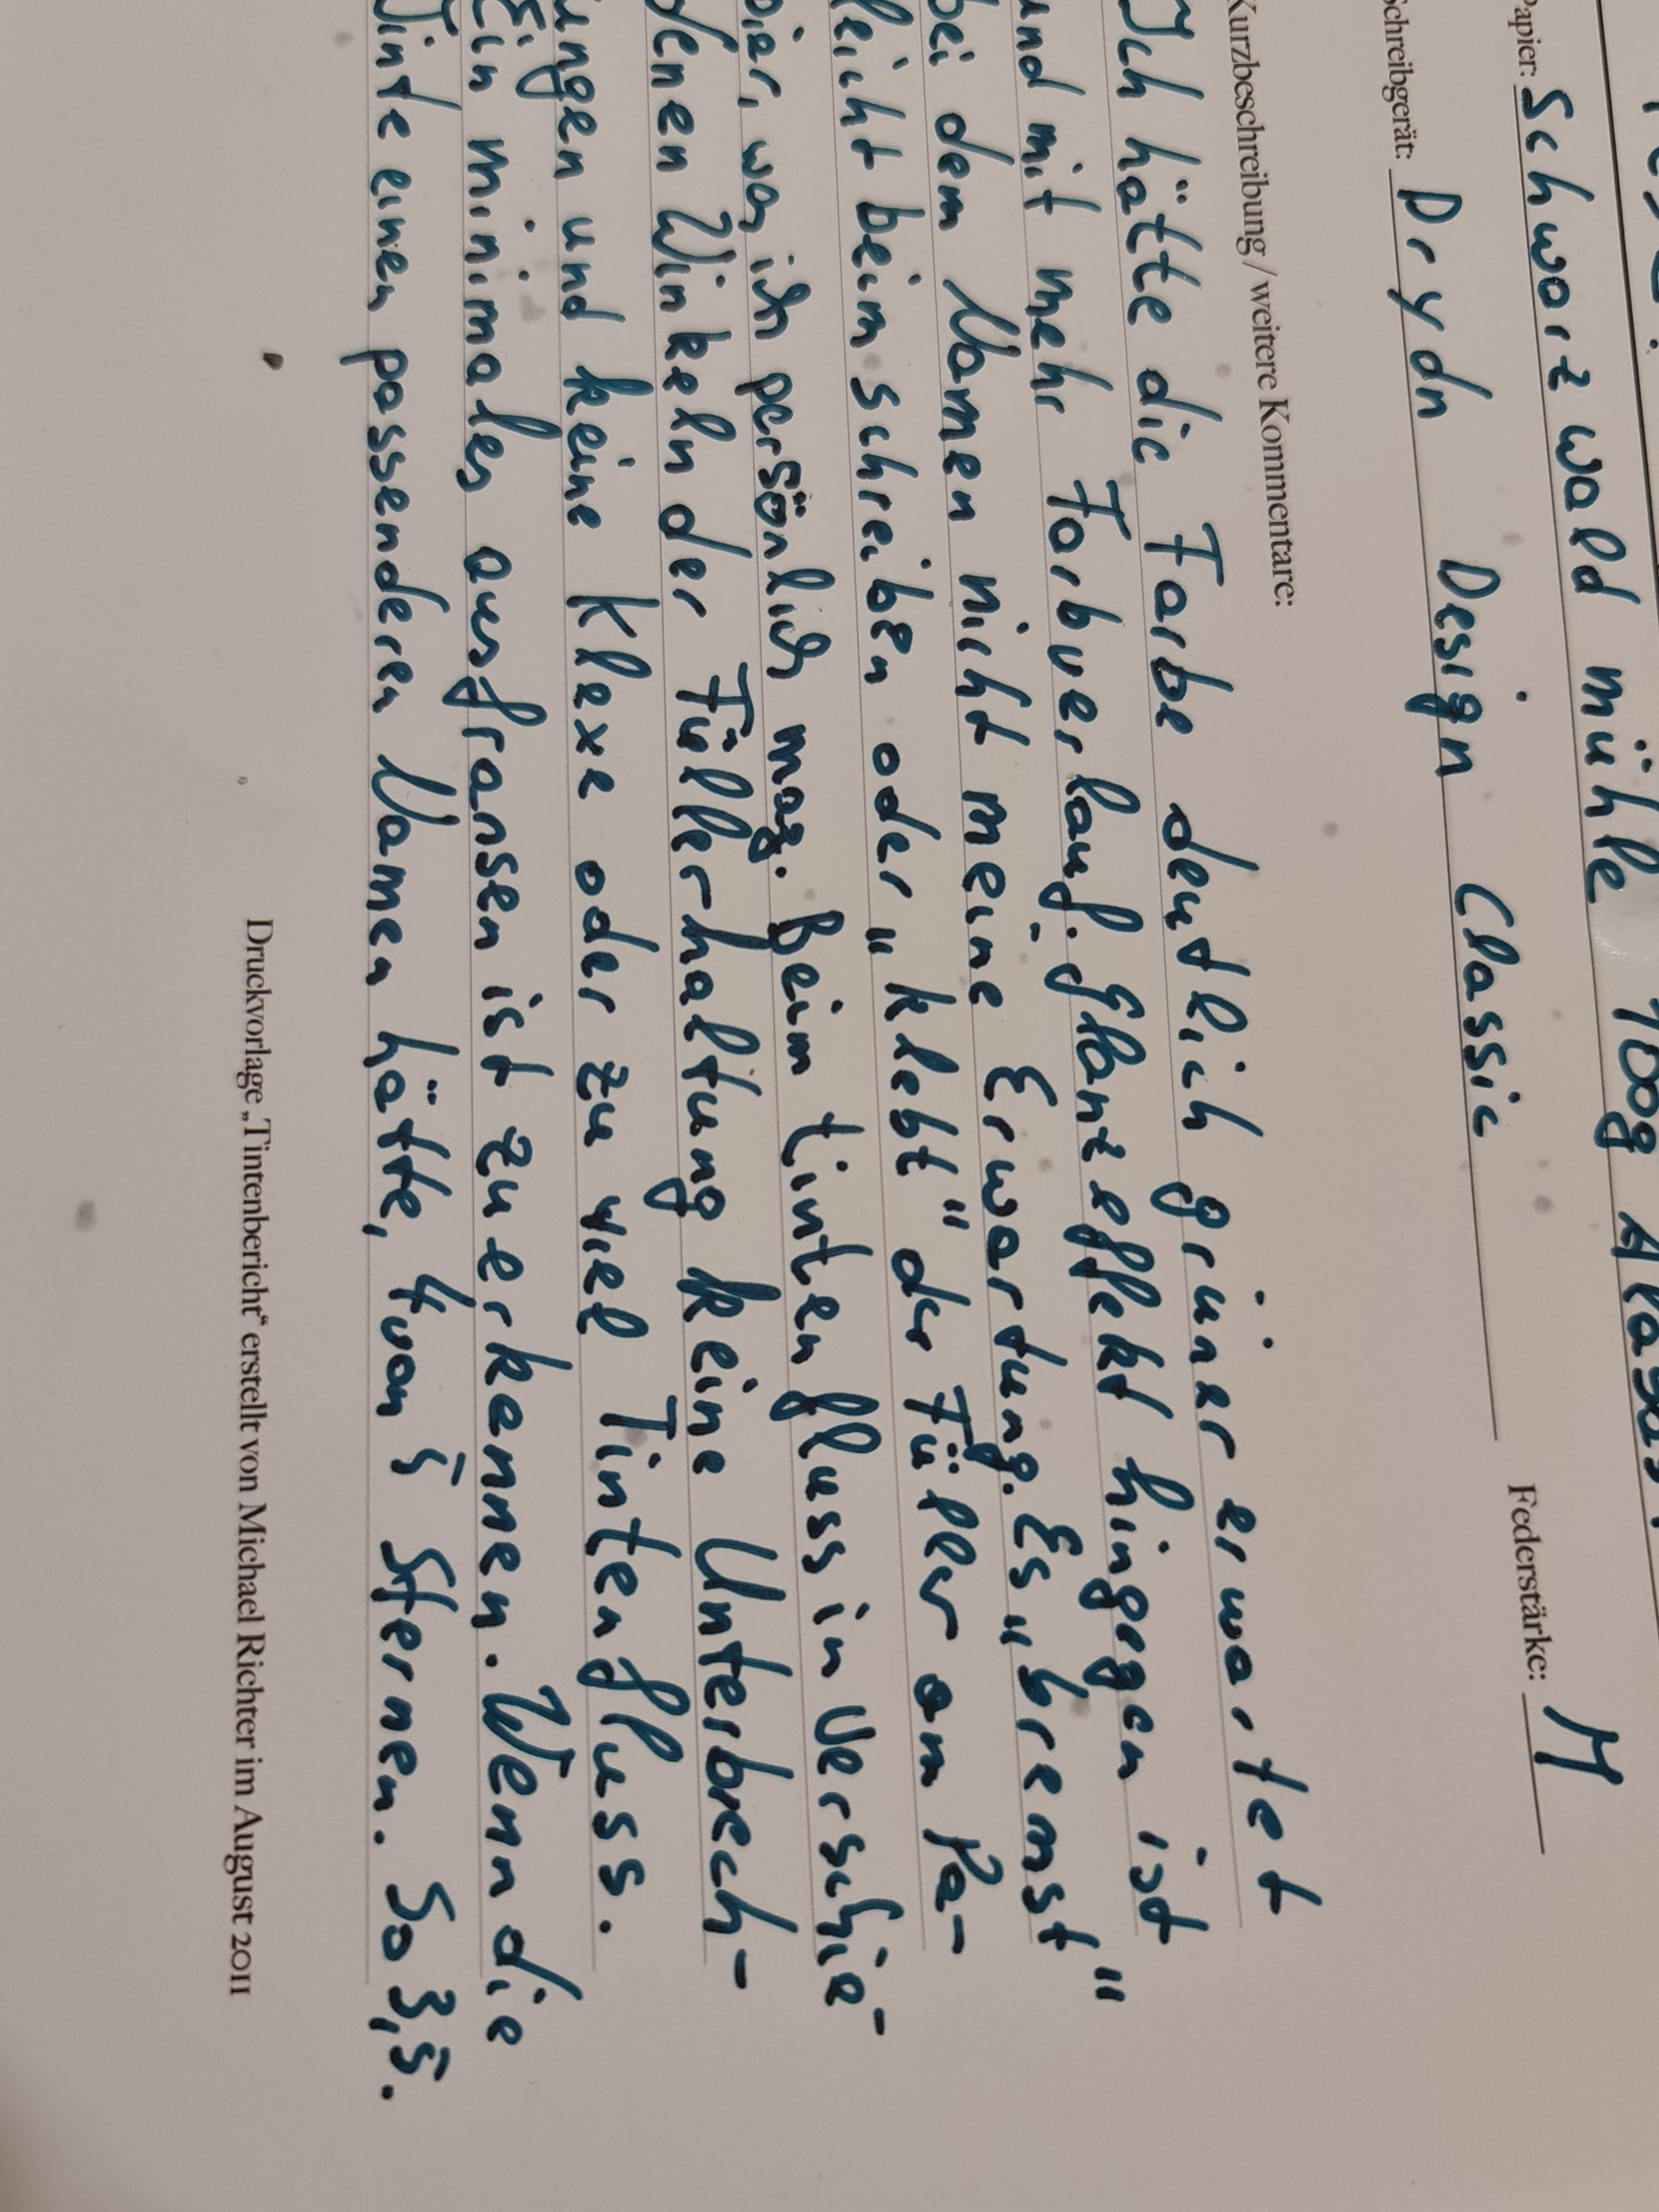 Papier: Schwarzwald mühle 100g
Schreibgerät: Drydn Design Classic Federstärke: M
Kurzbeschreibung / weitere Kommentare:
Ich hätte die Farbe deutlich grüner erwartet
und mit mehr Farbverlauf. Glanzeffekt hingegen ist
bei dem Namen nicht meine Erwartung. Es "bremst"
leicht beim schreiben oder "klebt" der Füller am Pa-
pier, was ich persönlich mag. Beim tintenfluss in verschie-
denen Winkeln der Füllerhaltung keine Unterbrech-
ungen und keine Klexe oder zu viel Tintenfluss.
Ein minimales ausfransen ist zu erkennen. Wenn die
Tinte einen passenderen Namen hätte, 4 von 5 Sternen. So 3,5.
Druckvorlage „Tintenbericht“ erstellt von Michael Richter im August 2011